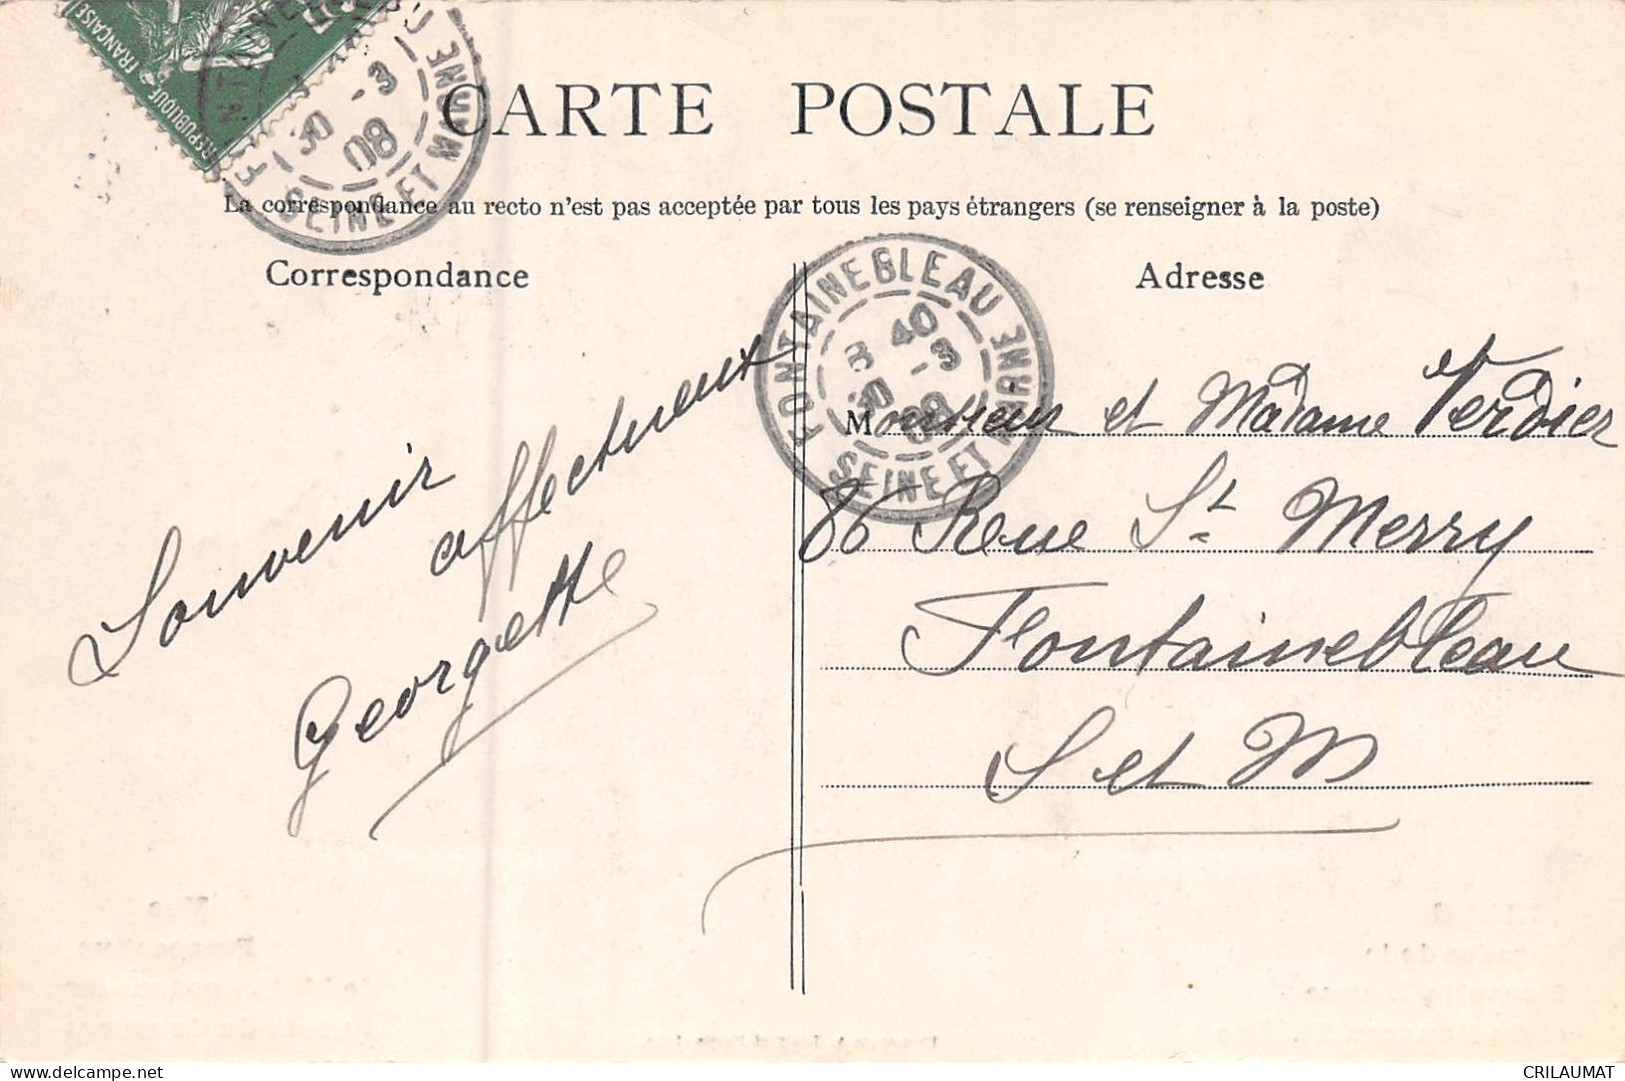 REPUBLIQUE FRANÇAISE
30 -3
08
SEINE ET MARNE
CARTE POSTALE
La correspondance au recto n'est pas acceptée par tous les pays étrangers (se renseigner à la poste)
Correspondance
Adresse
FONTAINEBLEAU
40
30 -3
08
SEINE ET MARNE
Souvenir
affectueux
Georgette
Monsieur et Madame Verdier
86 Rue St Merry
Fontainebleau
S et M
CRILAUMAT